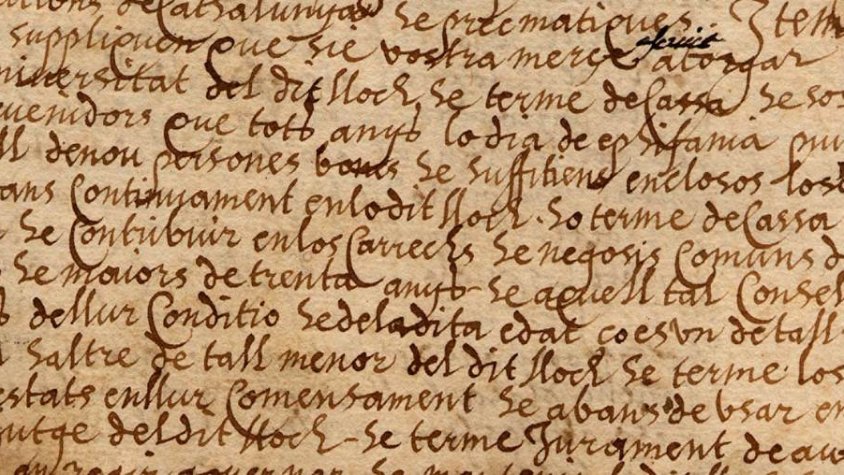 de Cathalunya he precmatiques. Item
suppliquen que sie vostra merçe atorgar
universitat del dit lloch he terme de Cassa he
evenidors que tots anys lo dia de ephifania
denou persones bones he suffitiens enclosos los
Continuament enlodit lloch ho terme de Cassa
he Contribuir enlos Carrechs he negosis Comuns
he maiors de trenta anys he aquell tal Consell
dellur Conditio he deladita edat ço es vn de tall
haltre de tall menor del dit lloch he terme los
estats enllur Comensament he abans de vsar en
jutge deldit lloch he terme Jurament de